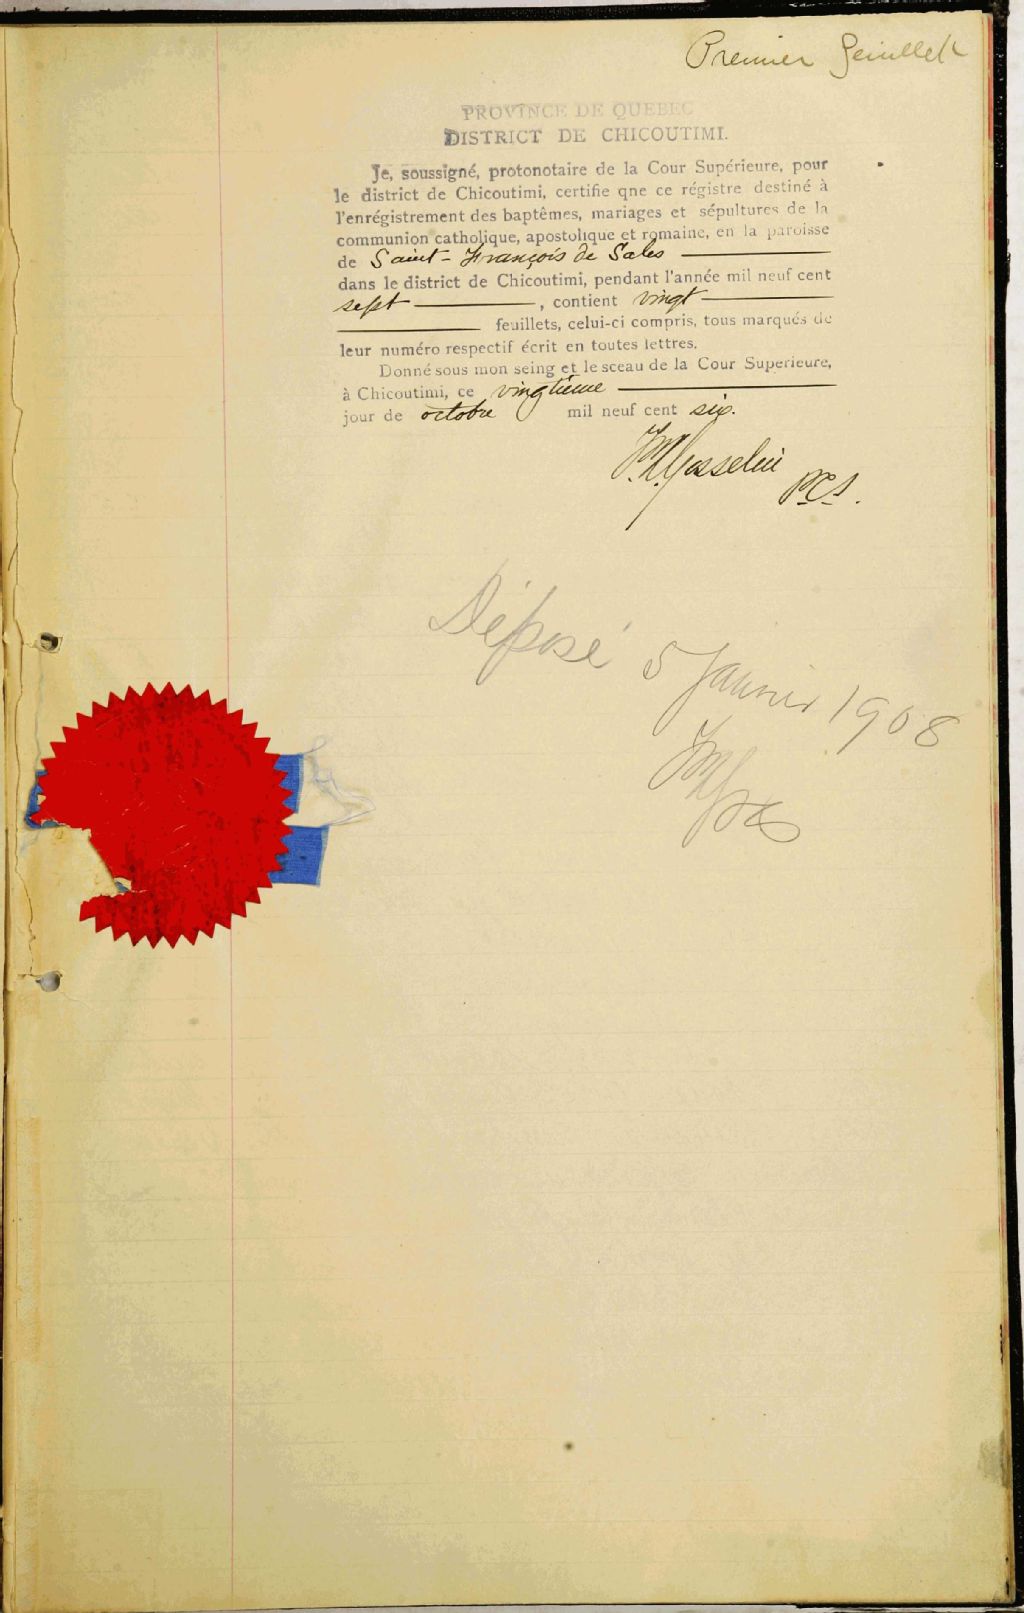 Premier feuillet
PROVINCE DE QUEBEC
DISTRICT DE CHICOUTIMI.
Je, soussigné, protonotaire de la Cour Supérieure, pour
le district de Chicoutimi, certifie qne ce régistre destiné à
l'enrégistrement des baptêmes, mariages et sépultures de la
communion catholique, apostolique et romaine, en la paroisse
de Saint-François de Sales
dans le district de Chicoutimi, pendant l'année mil neuf cent
sept, contient vingt
feuillets, celui-ci compris, tous marqués de
leur numéro respectif écrit en toutes lettres.
Donné sous mon seing et le sceau de la Cour Superieure,
à Chicoutimi, ce vingtième
jour de octobre mil neuf cent six.
Gosselin
PCS.
Déposé 5 Janvier 1908